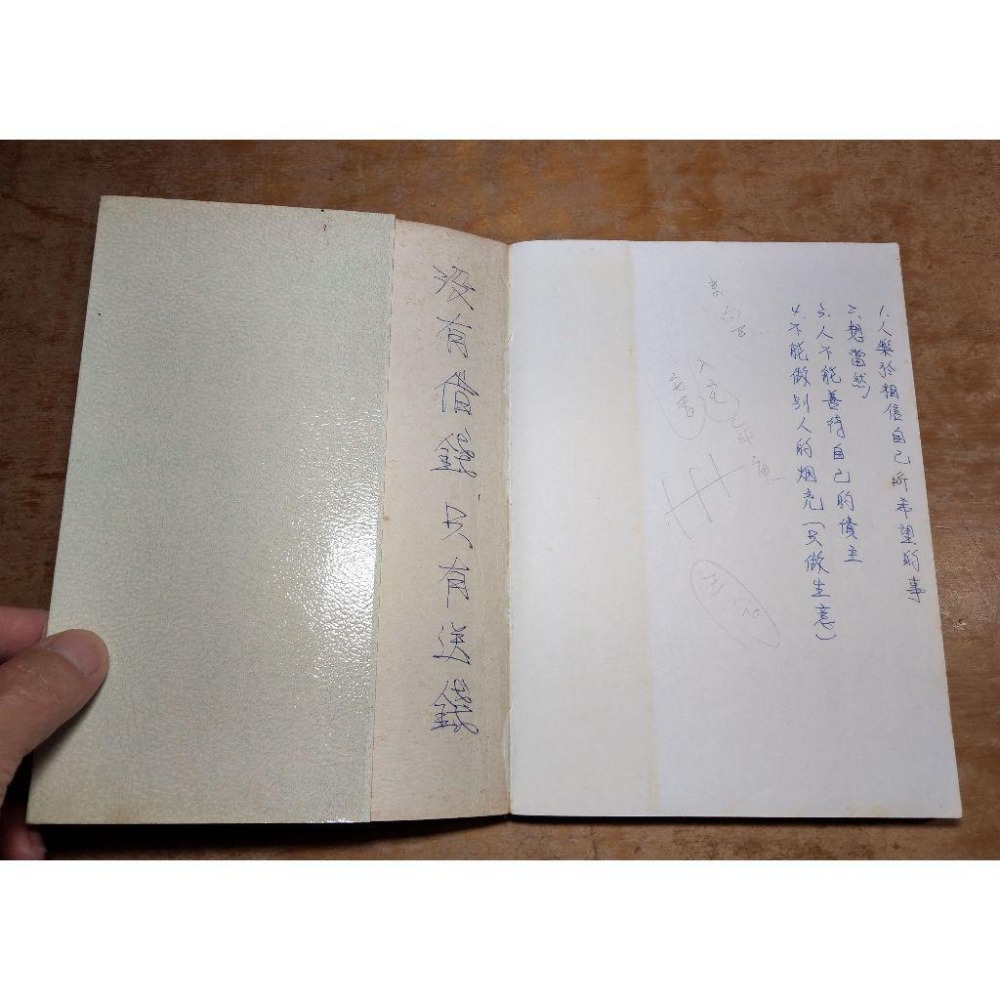 1.人樂於相信自己所希望的事
2.想當然
3.人不能善待自己的債主
4.不能做别人的烟壳(只做生意)
没有借錢,只有送錢